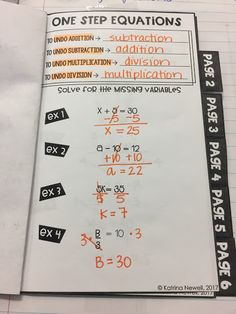 ONE STEP EQUATIONS
TO UNDO ADDITION → subtraction
TO UNDO SUBTRACTION → addition
TO UNDO MULTIPLICATION → division
TO UNDO DIVISION → multiplication
SOLVE FOR THE MISSING VARIABLES
ex 1
x + 5 = 30
-5 -5
x = 25
ex 2
a - 10 = 12
+10 +10
a = 22
ex 3
5k = 35
5 5
K = 7
ex 4
3· B = 10 ·3
3
B = 30
PAGE 2
PAGE 3
PAGE 4
PAGE 5
PAGE 6
© Katrina Newell, 2017